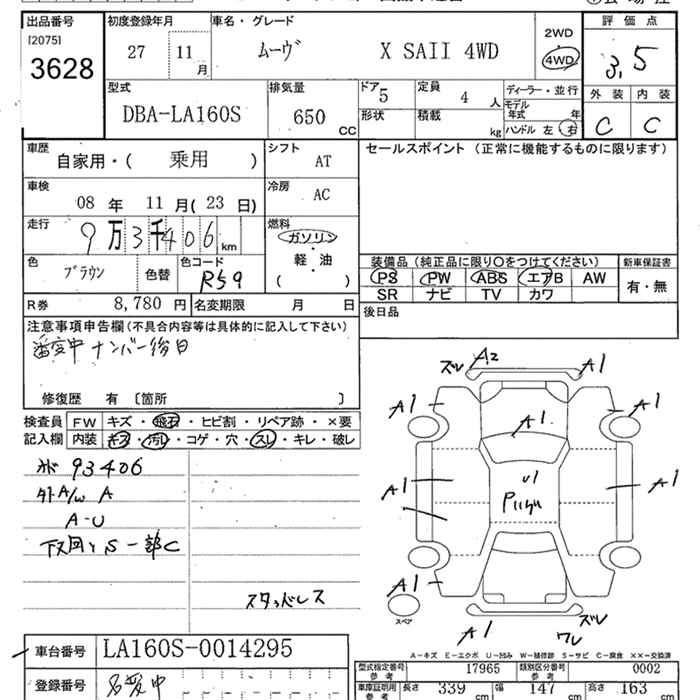 出品番号 初度登録年月 車名・グレード 評価点
[2075] 2WD
3628 27 11月 ムーヴ X SAII 4WD 4WD 3,5
外装 内装
型式 排気量 ドア 定員 ディーラー・並行
DBA-LA160S 650 CC 5 4 人 モデル年式 年 C C
形状 積載 kg ハンドル 左 右
車歴 シフト セールスポイント (正常に機能するものに限ります)
自家用・( 乗用 ) AT
車検 冷房
08 年 11 月( 23 日) AC
走行 燃料
9万3千406 km ガソリン
色 色コード 軽・油 装備品(純正品に限り○をつけてください) 新車保証書
ブラウン 色替 R59 ( ) PS PW ABS エアB AW 有・無
SR ナビ TV カワ
R券 8,780 円 名変期限 月 日 後日品
注意事項申告欄(不具合内容等は具体的に記入して下さい)
番変中 ナンバー後日
修復歴 有 〔箇所 〕
ズレ A2 A1
検査員 FW キズ・飛石・ヒビ割・リペア跡・×要
記入欄 内装 キズ・汚レ・コゲ・穴・スレ・キレ・破レ
A1 A1 A1
93406
外A/W A
A-U
下廻りS一部C
A1 U1 A1
スタッドレス
A1 スペア
A1 ワレ ズレ
車台番号 LA160S-0014295
A-キズ E-エクボ U-凹み W-補修跡 S-サビ C-腐食 ××-交換済
登録番号 名変中
型式指定番号 参考 17965 類別区分番号 参考 0002
車庫証明用 参考 長さ 339 cm 幅 147 cm 高さ 163 cm